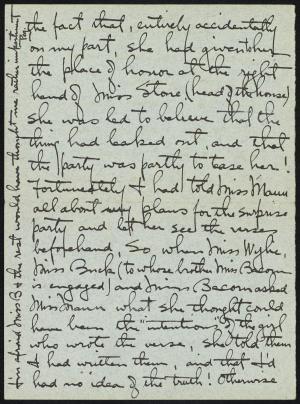 the fact that, entirely accidentally
on my part, she had given her
the place of honor at the right
hand of Miss Store, (head of the house)
she was led to believe that the
thing had leaked out, and that
the party was partly to tease her!
Fortunately I had told Miss Mann
all about my plans for the surprise
party and let her see the verses
beforehand, So when Miss Wylie,
Miss Buck (to whose brother Miss Bacom
is engaged) and Miss Bacom asked
Miss Mann what she thought could
have been the "intention" of the girl
who wrote the verse, she told them
I had written them, and that I'd
had no idea of the truth! Otherwise
I'm afraid Miss B & the rest would have thought me rather impertinent